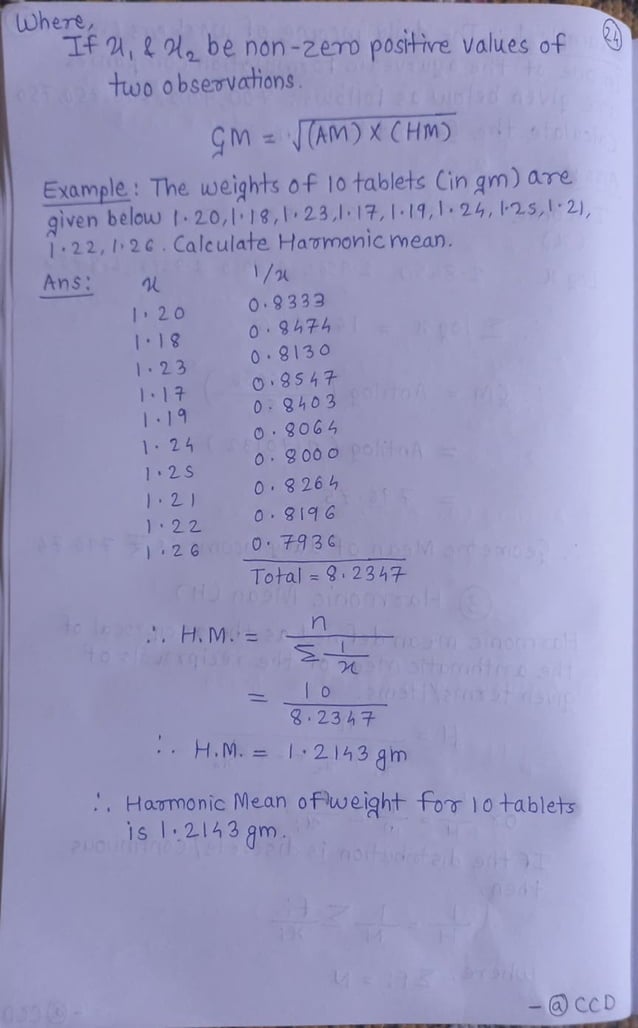 Where,
24
If x₁ & x₂ be non-zero positive values of
two observations.
GM = √(AM) X (HM)
Example : The weights of 10 tablets (in gm) are
given below 1.20, 1.18, 1.23, 1.17, 1.19, 1.24, 1.25, 1.21,
1.22, 1.26. Calculate Harmonic mean.
Ans: x 1/x
1.20 0.8333
1.18 0.8474
1.23 0.8130
1.17 0.8547
1.19 0.8403
1.24 0.8064
1.25 0.8000
1.21 0.8264
1.22 0.8196
1.26 0.7936
Total = 8.2347
∴ H.M. = n / Σ 1/x
= 10 / 8.2347
∴ H.M. = 1.2143 gm
∴ Harmonic Mean of weight for 10 tablets
is 1.2143 gm.
- @ CCD